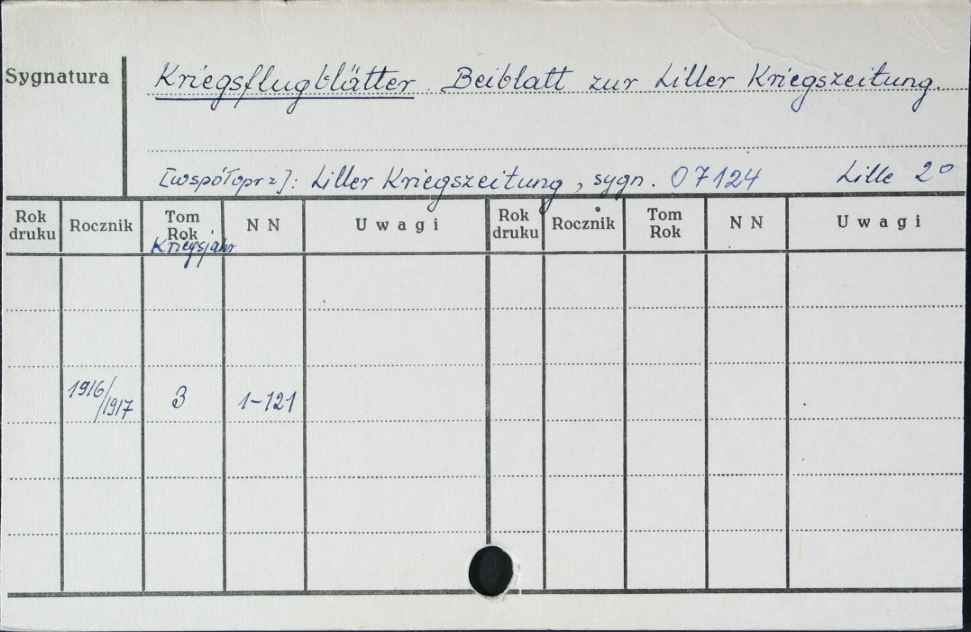 Sygnatura
Kriegsflugblätter. Beiblatt zur Liller Kriegszeitung.
[współoprz]: Liller Kriegszeitung, sygn. 07124 Lille 2°
Rok druku Rocznik Tom Rok N N Uwagi Rok druku Rocznik Tom Rok N N Uwagi
Kriegsjahr
1916/1917 3 1-121